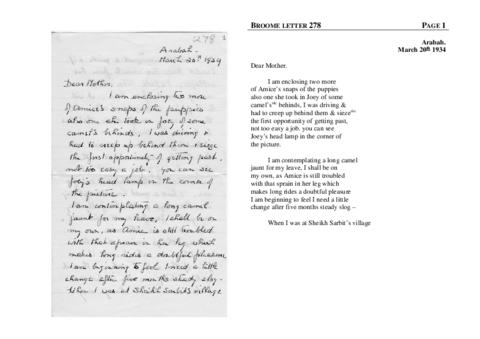 278
Arabah.
March 20th 1934
Dear Mother.
I am enclosing two more
of Amice's snaps of the puppies
also one she took in Joey of some
camel's behinds, I was driving &
had to creep up behind them & sieze
the first opportunity of getting past,
not too easy a job. you can see
Joey's head lamp in the corner of
the picture.
I am contemplating a long camel
jaunt for my leave, I shall be on
my own, as Amice is still troubled
with that sprain in her leg which
makes long rides a doubtful pleasure
I am beginning to feel I need a little
change after five months steady slog –
When I was at Sheikh Sarbit's village
BROOME LETTER 278 PAGE 1
Arabah.
March 20th 1934
Dear Mother.
I am enclosing two more
of Amice's snaps of the puppies
also one she took in Joey of some
camel's behinds, I was driving &
had to creep up behind them & sieze
the first opportunity of getting past,
not too easy a job. you can see
Joey's head lamp in the corner of
the picture.
I am contemplating a long camel
jaunt for my leave, I shall be on
my own, as Amice is still troubled
with that sprain in her leg which
makes long rides a doubtful pleasure
I am beginning to feel I need a little
change after five months steady slog –
When I was at Sheikh Sarbit's village